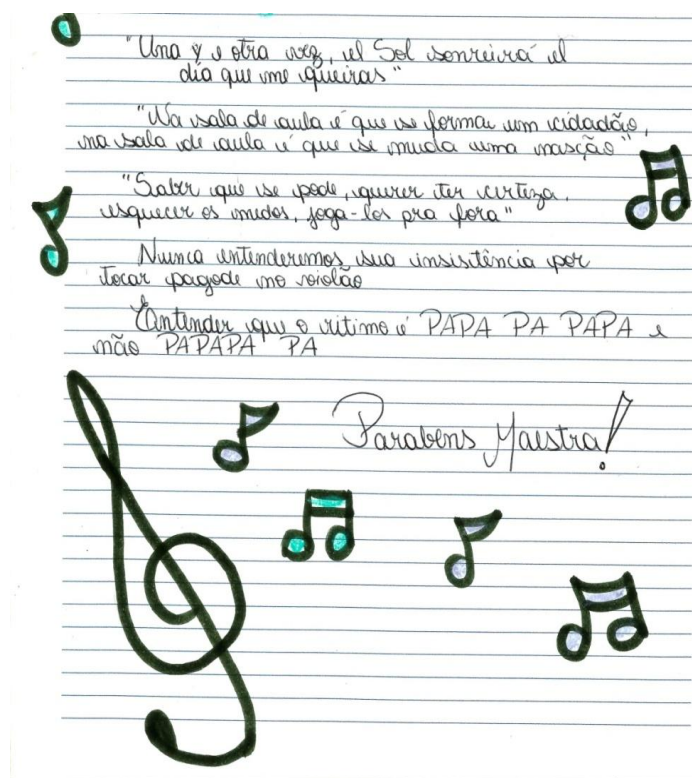 "Una y e otra vez, el Sol sonreirá el
día que me queiras"
"Na sala de aula é que se forma um cidadão,
na sala de aula é que se muda uma nasção"
"Saber que se pode, querer ter certeza,
esquecer os medos, joga-los pra fora"
Nunca entenderemos sua insistência por
tocar pagode no violão
Entender que o ritimo é PAPA PA PAPA e
não PAPAPA PA
Parabens Maestra!